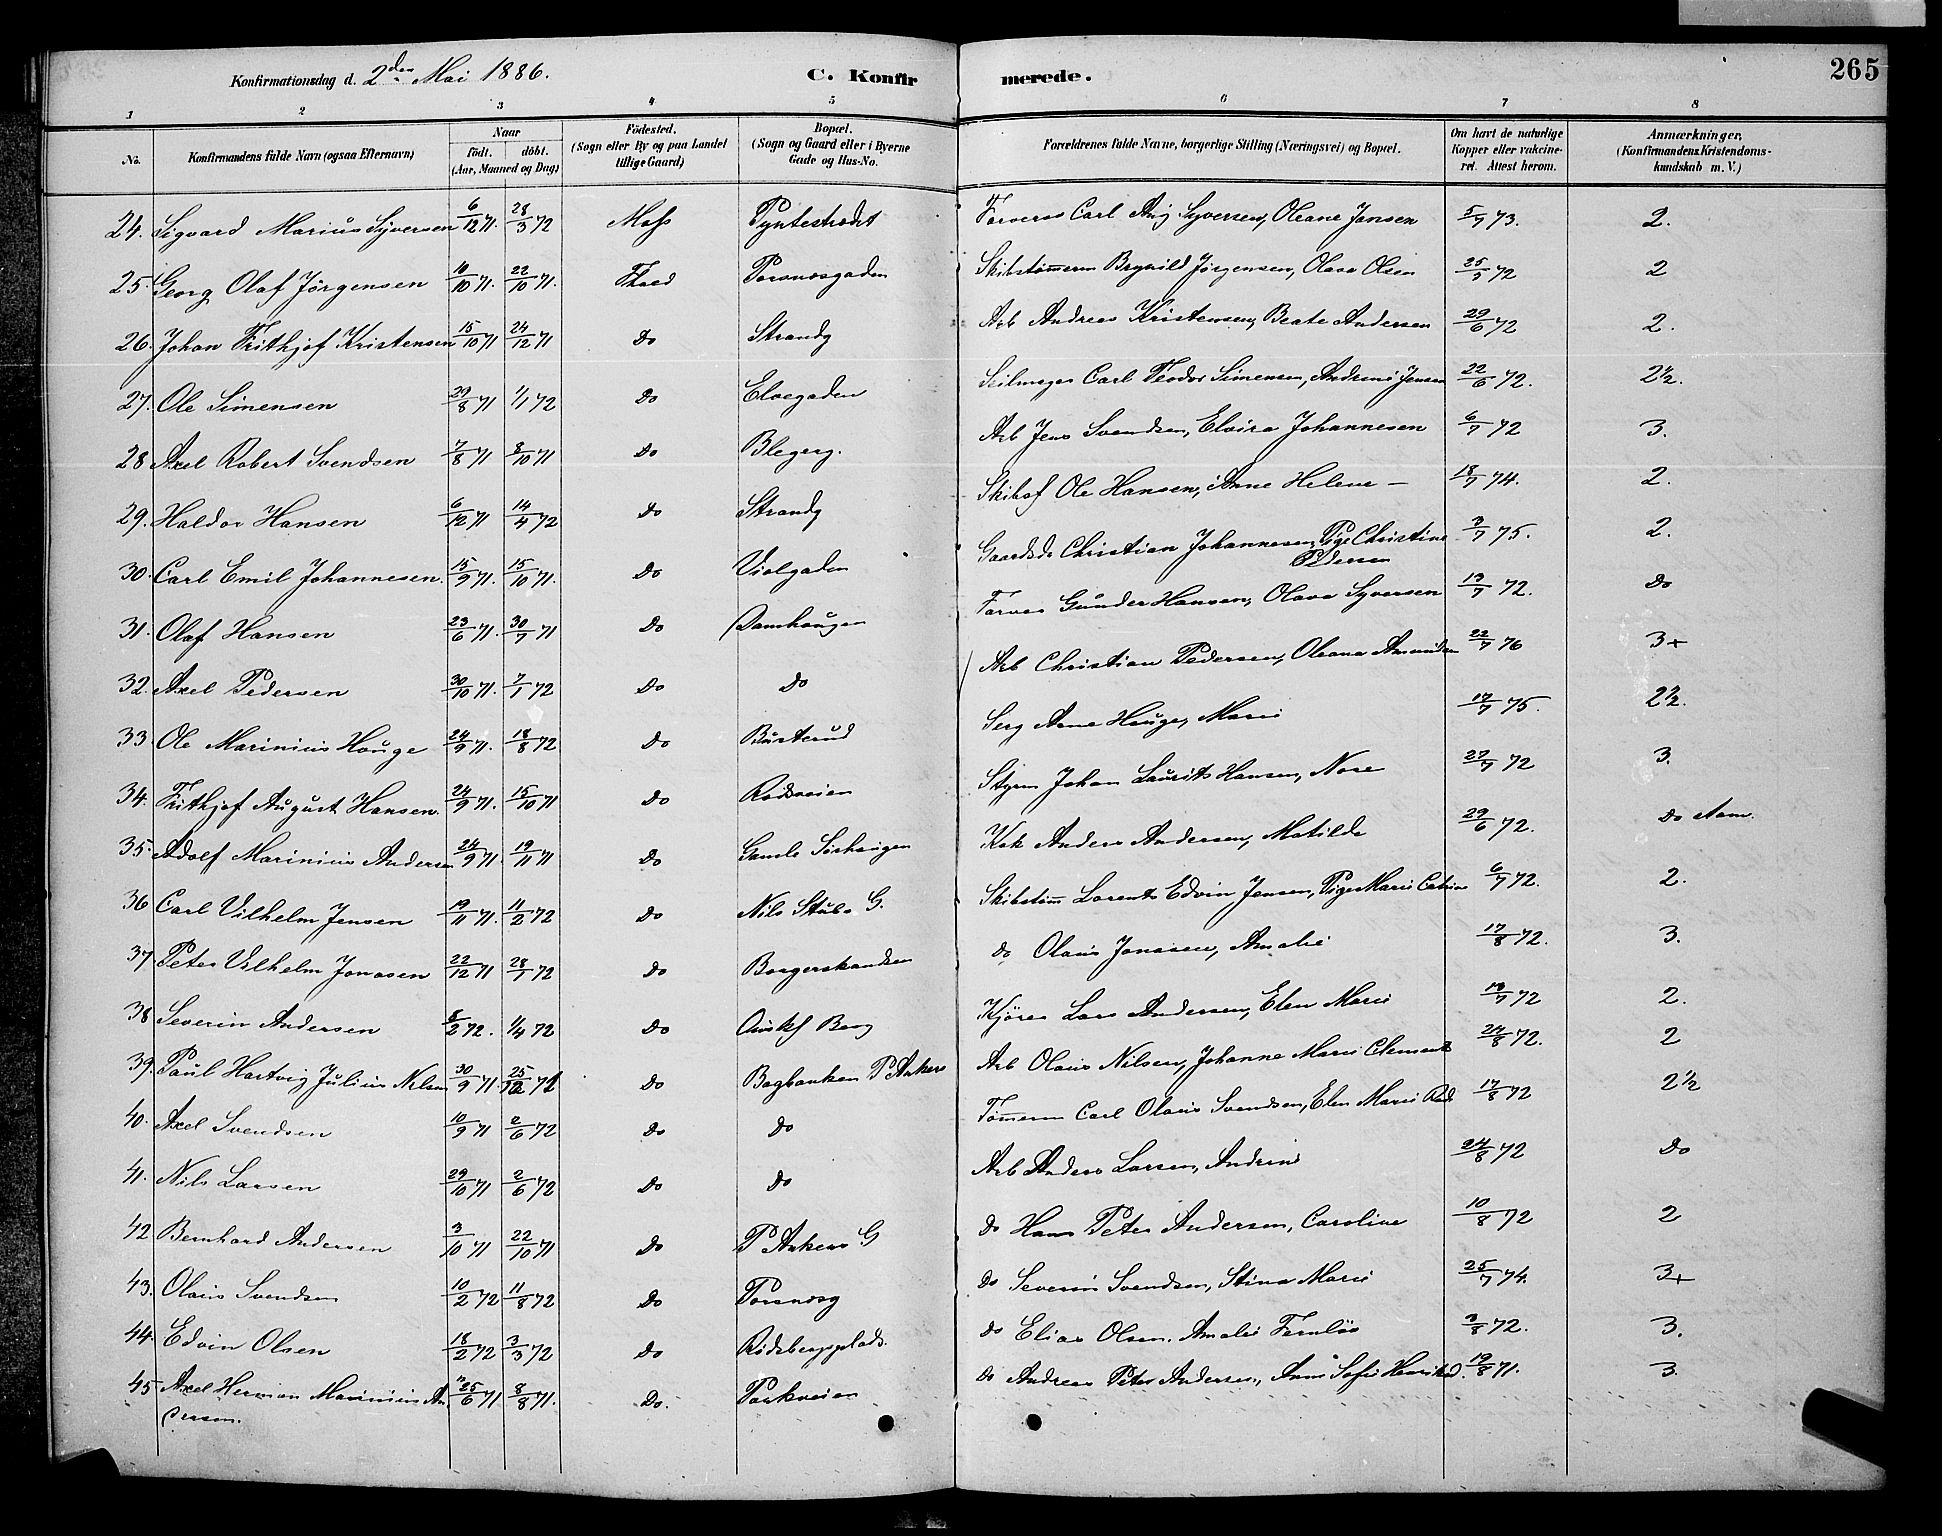 Konfirmationsdag d. 2den Mai 1886. C. Konfirmerede. 265
1 2 3 4 5 6 7 8
No. Konfirmandens fulde Navn (ogsaa Efternavn) Naar født. døbt. (Aar, Maaned og Dag) Fødested. (Sogn eller By og paa Landet tillige Gaard) Bopæl. (Sogn og Gaard eller i Byerne Gade og Hus-No. Forældrenes fulde Navne, borgerlige Stilling (Næringsvei) og Bopæl. Om havt de naturlige Kopper eller vakcineret. Attest herom. Anmærkninger, (Konfirmandens Kristendomskundskab m. V.)
24. Sigvard Marius Syversen 6/12 71. 28/3 72 Moss Carl Aug Syversen, Oleane Jansen 5/7 73. 2.
25. Georg Olaf Jørgensen 10/10 71. 22/10 71. Fhald Porsnesgaden Skibstømmerm Brynild Jørgensen, Olava Olsen 25/5 72 2
26. Johan Frithjof Kristensen 15/10 71 24/12 71 Do Strandg Arb Andreas Kristensen, Beate Andersen 29/6 72 2.
27. Ole Simensen 29/8 71 1/1 72 Do Elvegaden Seilmager Carl Teodor Simensen, Andrine Jensen 22/6 72. 2½.
28 Axel Robert Svendsen 7/8 71 8/10 71 Do Blegerg. Arb Jens Svendsen, Elvira Johannesen 6/7 72 3.
29. Haldor Hansen 6/12 71 14/4 72 Do Strandg Ole Hansen, Anne Helene — 18/7 74. 2.
30. Carl Emil Johannesen. 15/9 71. 15/10 71. Do Violgaden Gaardsdr Christian Johannesen, Pige Christine Pedersen 3/7 75. 2.
31. Olaf Hansen 23/6 71. 30/7 71 Do Damhaugen Farver Gunder Hansen, Olava Syversen 13/7 72. Do
32. Axel Pedersen 30/10 71. 7/1 72 Do Do Arb Christian Pedersen, Oleana Amundsen 22/7 76 3+
33. Ole Marinius Hauge 24/9 71. 18/8 72 Do Busterud Serg Arne Hauge, Marie 17/7 75. 2½.
34. Frithjof August Hansen. 24/9 71. 15/10 71 Do Rødsveien Styrm Johan Laurits Hansen, Nore 27/7 72 3.
35. Adolf Marinius Andersen 24/9 71. 19/11 71 Do Gamle Kok Anders Andersen, Matilde 29/6 72. Do
36 Carl Vilhelm Jensen 19/11 71. 11/2 72 Do Nils Stubs G. Skibstøm Lorents Edvin Jensen, Pige Marie 6/7 72. 2.
37 Peter Vilhelm Jonasen 22/12 71 28/1 72 Do Borgerskandsen do Olaus Jonasen, Amalie 17/8 72. 3.
38 Severin Andersen 8/2 72. 1/4 72 Do Berg Kjører Lars Andersen, Elen Marie 13/7 72 2.
39. Paul Hartvig Julius Nilsen 30/9 71 25/12 71 Do Bagbanken P Ankers Arb Olaus Nilsen, Johanne Marie Clements 24/8 72. 2
40. Axel Svendsen 10/9 71 2/6 72 Do Do Tømmerm Carl Olaus Svendsen, Elen Marie 17/8 72 2½
41. Nils Larsen 29/10 71 2/6 72 Do Do Arb Anders Larsen, Andrine 24/8 72 Do
42 Bernhard Andersen 3/10 71 22/10 71 Do P Ankers G do Hans Peter Andersen, Caroline 10/8 72 2
43. Olaus Svendsen 10/2 72 11/8 72 Do Porsnesg do Severin Svendsen, Stina Marie 25/7 74. 3+
44. Edvin Olsen 18/2 72 3/3 72 Do Rødsbergplads. do Elias Olsen. Amalie 3/8 72. 3.
45 Axel Herman Marinius Andersen. 25/6 71 8/8 71. Do. Parkveien do Andreas Peter Andersen, Anne Sofie 19/8 71. 3.